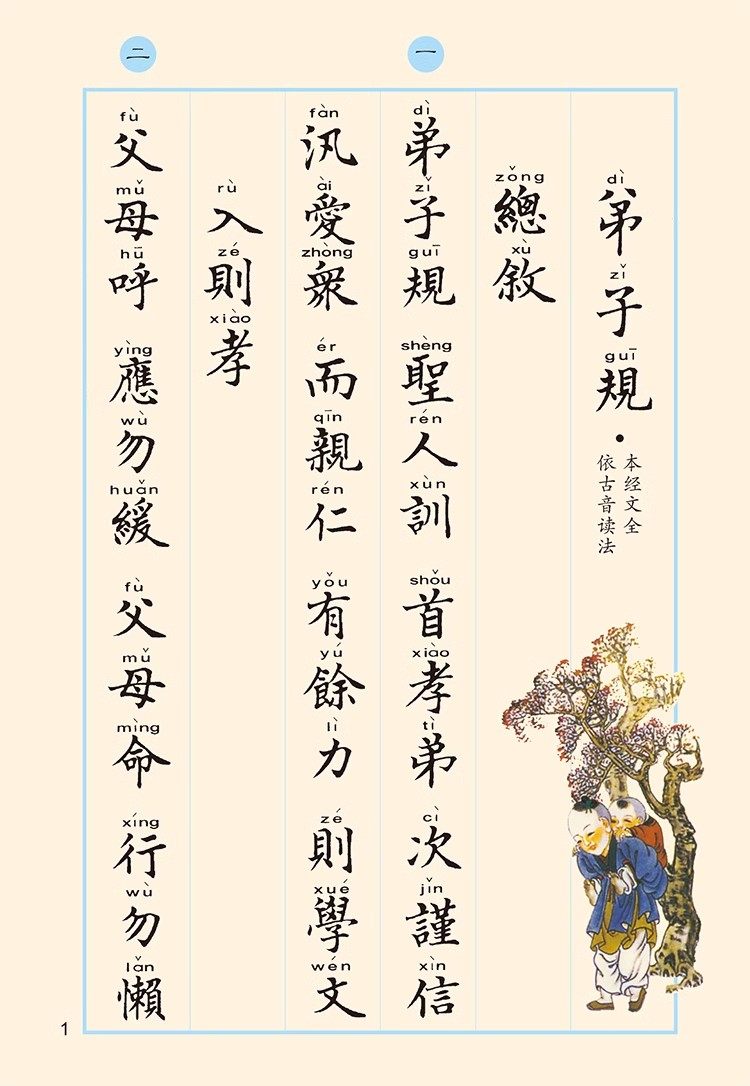 dì zǐ guī
弟子規·
本经文全
依古音读法
zǒng xù
總敘
一
dì zǐ guī shèng rén xùn shǒu xiào tì cì jǐn xìn
弟子規 聖人訓 首孝弟 次謹信
fàn ài zhòng ér qīn rén yǒu yú lì zé xué wén
汎愛眾 而親仁 有餘力 則學文
rù zé xiào
入則孝
二
fù mǔ hū yìng wù huǎn fù mǔ mìng xíng wù lǎn
父母呼 應勿緩 父母命 行勿懶
1